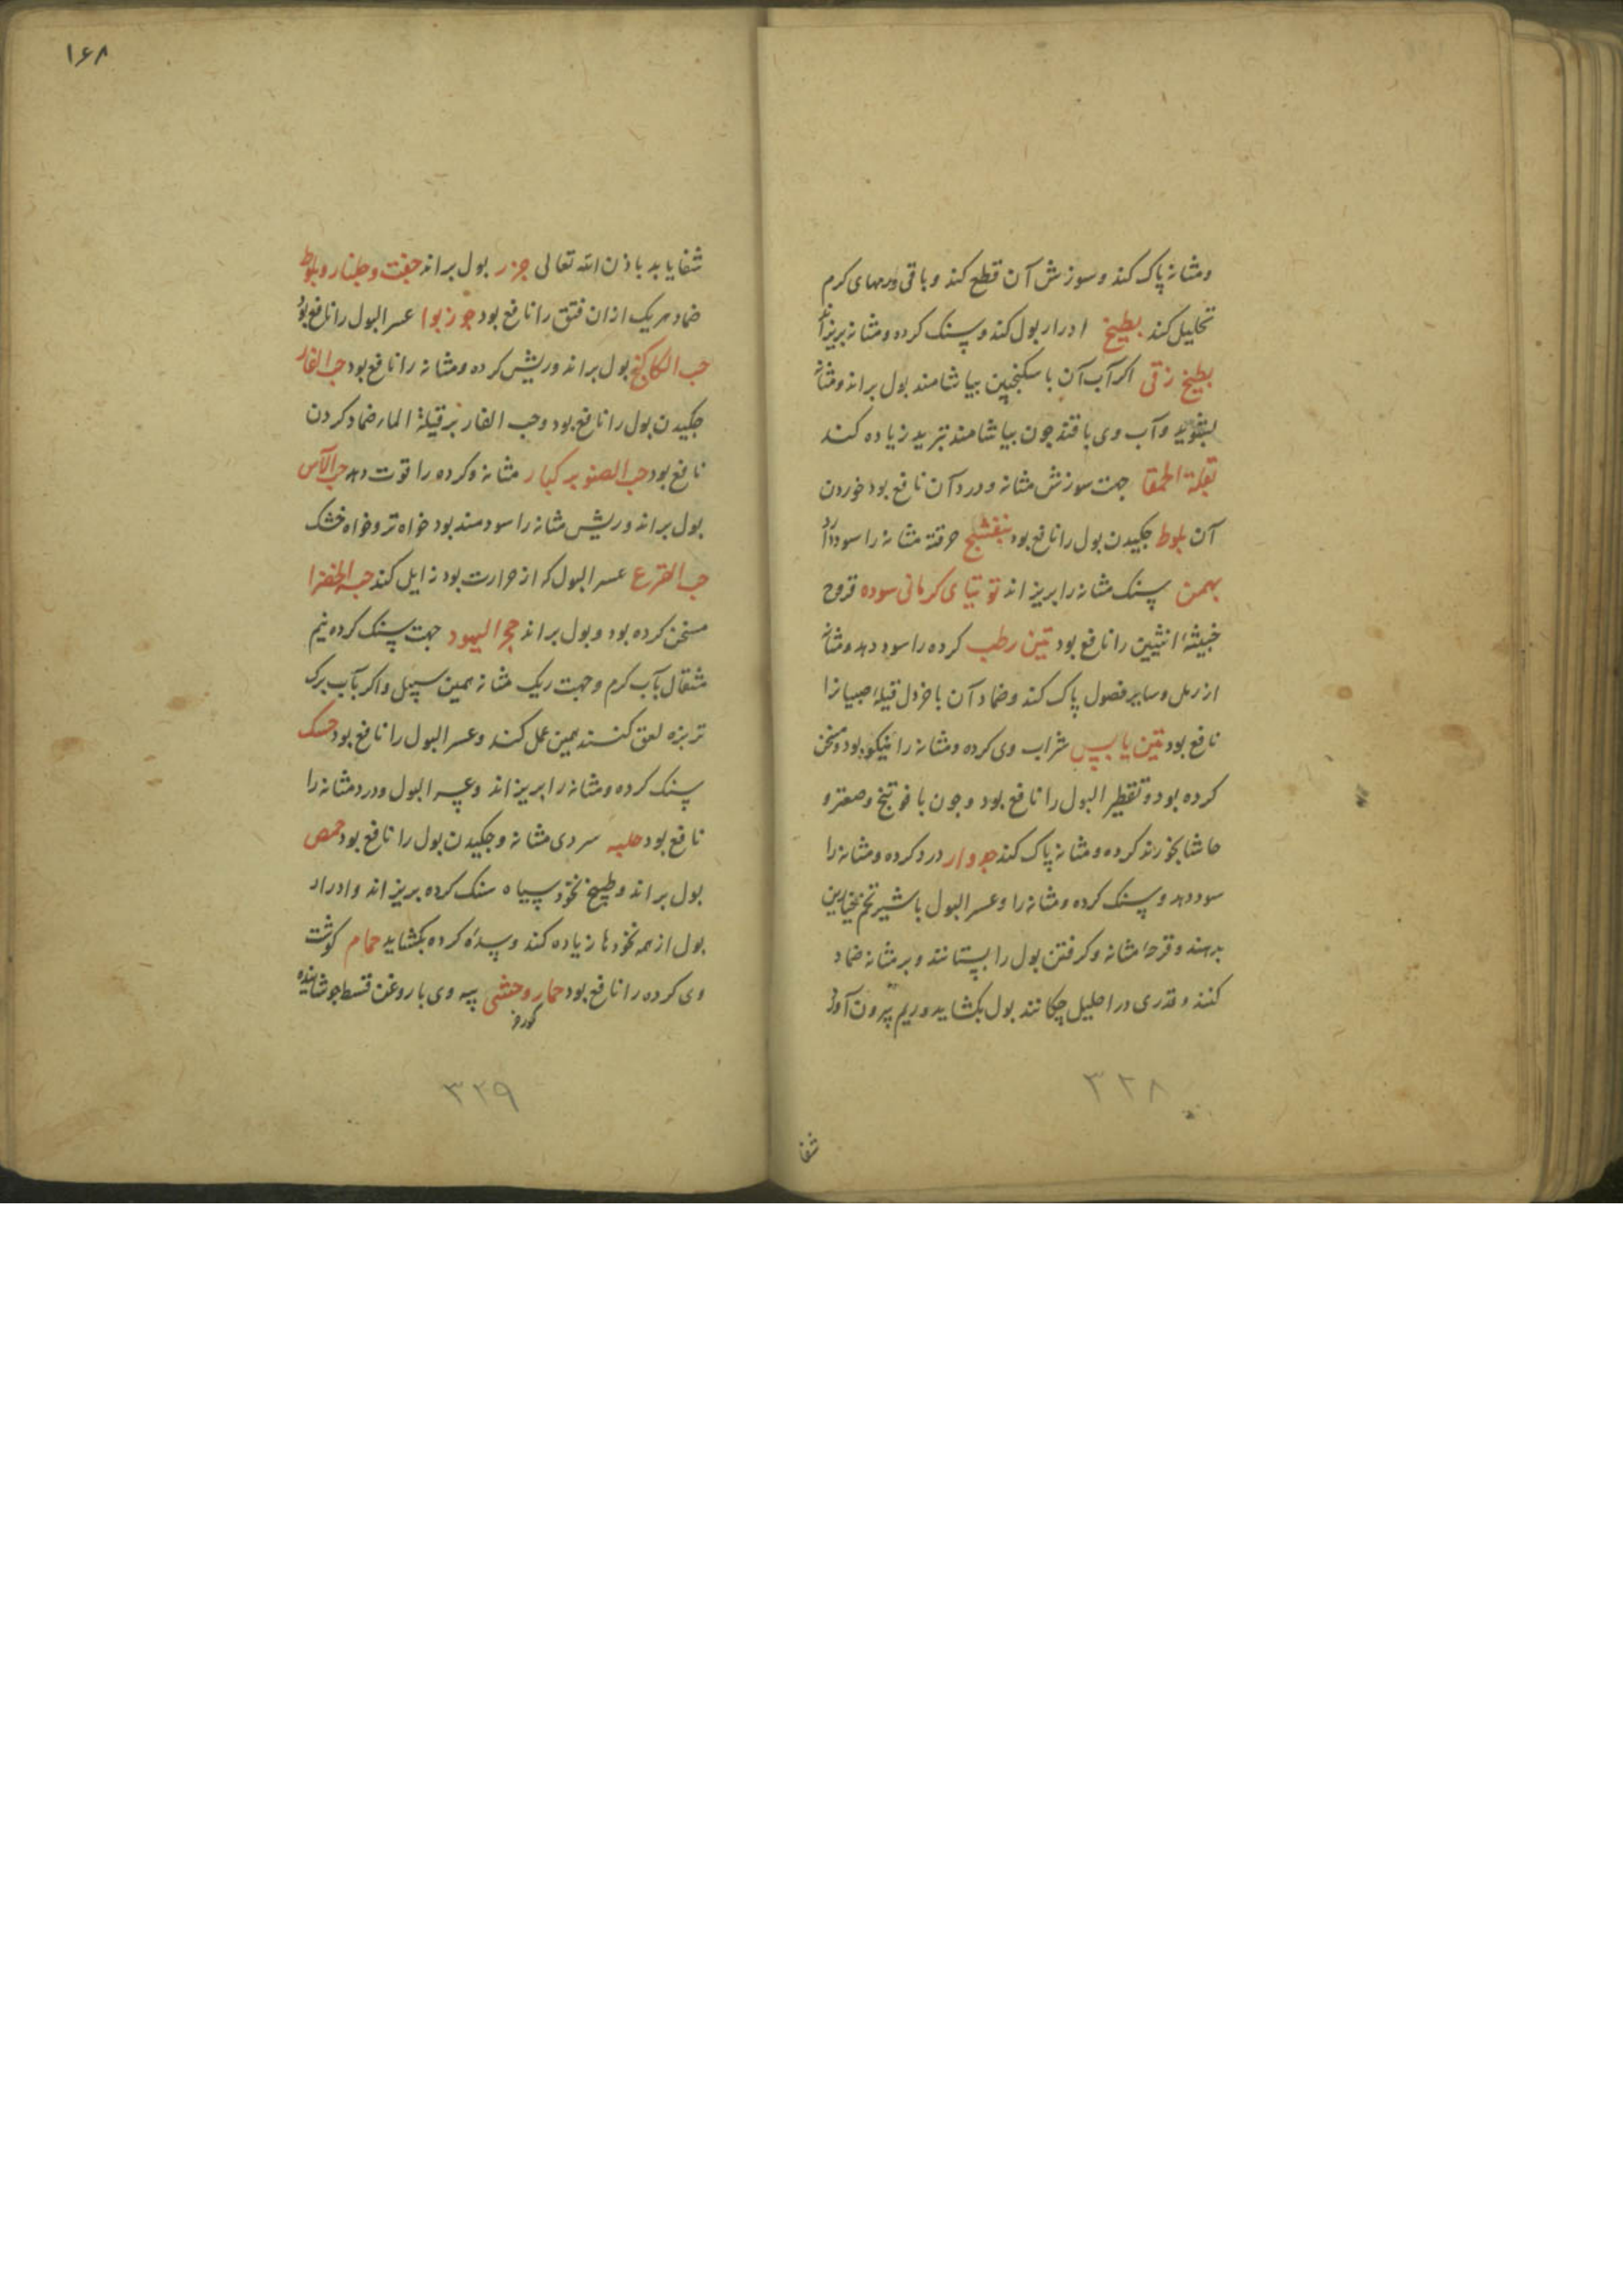 ومثانه پاک کند وسوزش آن قطع کند و باقی ورمهای کرم
تحلیل کند بطیخ ادرار بول کند وسنک کرده ومثانه بریزاند
بطیخ زقی اکر آب آن با سکنجبین بیاشامند بول براند ومثانه
بشوید وآب وی با قند چون بیاشامند تبرید زیاده کند
بقلة الحمقا جهت سوزش مثانه ودرد آن نافع بود خوردن
آن بلوط جکیدن بول را نافع بود بنفشج حرقة مثانه را سود دارد
بهمن سنک مثانه را بریزاند توتیای کرمانی سوده قروح
خبیثهٔ انثیین را نافع بود تین رطب کرده را سود دهد ومثانه
از رمل وسایر فضول پاک کند وضماد آن با خردل قیلهٔ صبیانرا
نافع بود تین یابس شراب وی کرده ومثانه را نیکو بود ومسخن
کرده بود وتقطیر البول را نافع بود وجون با فوتنج وصعتر و
حاشا بخورند کرده ومثانه پاک کند جدوار درد کرده ومثانه را
سود دهد وسنک کرده ومثانه را وعسر البول با شیر تخم خیارین
بدهند وقرحهٔ مثانه وکرفتن بول را بستانند وبر مثانه ضماد
کنند وقدری در احلیل چکانند بول بکشاید وریم بیرون آورد
۳۲۸
شفا
۱۶۸
شفا یابد باذن الله تعالی جزر بول براند جفت وجلنار وبلوط
ضماد هریک ازان فتق را نافع بود جوزبوا عسر البول را نافع بود
حب الکاکنج بول براند وریش کرده ومثانه را نافع بود حب الغار
جکیدن بول را نافع بود وحب الغار بر قیلة الماء ضماد کردن
نافع بود حب الصنوبر کبار مثانه وکرده را قوت دهد حب الآس
بول براند وریش مثانه را سودمند بود خواه تر وخواه خشک
حب القرع عسر البول که از حرارت بود زایل کند حبة الخضرا
مسخن کرده بود وبول براند حجر الیهود جهت سنک کرده نیم
مثقال بآب کرم وجهت ریک مثانه همین سبیل واکر بآب برک
تربزه لعق کنند همین عمل کند وعسر البول را نافع بود حسک
سنک کرده ومثانه را بریزاند وعسر البول ودرد مثانه را
نافع بود حلبه سردی مثانه وجکیدن بول را نافع بود حمص
بول براند وطبیخ نخود سیاه سنک کرده بریزاند وادرار
بول از همه نخودها زیاده کند وسدهٔ کرده بکشاید حمام کوشت
وی کرده را نافع بود حمار وحشی پیه وی با روغن قسط جوشانیده
کورخر
۳۲۹